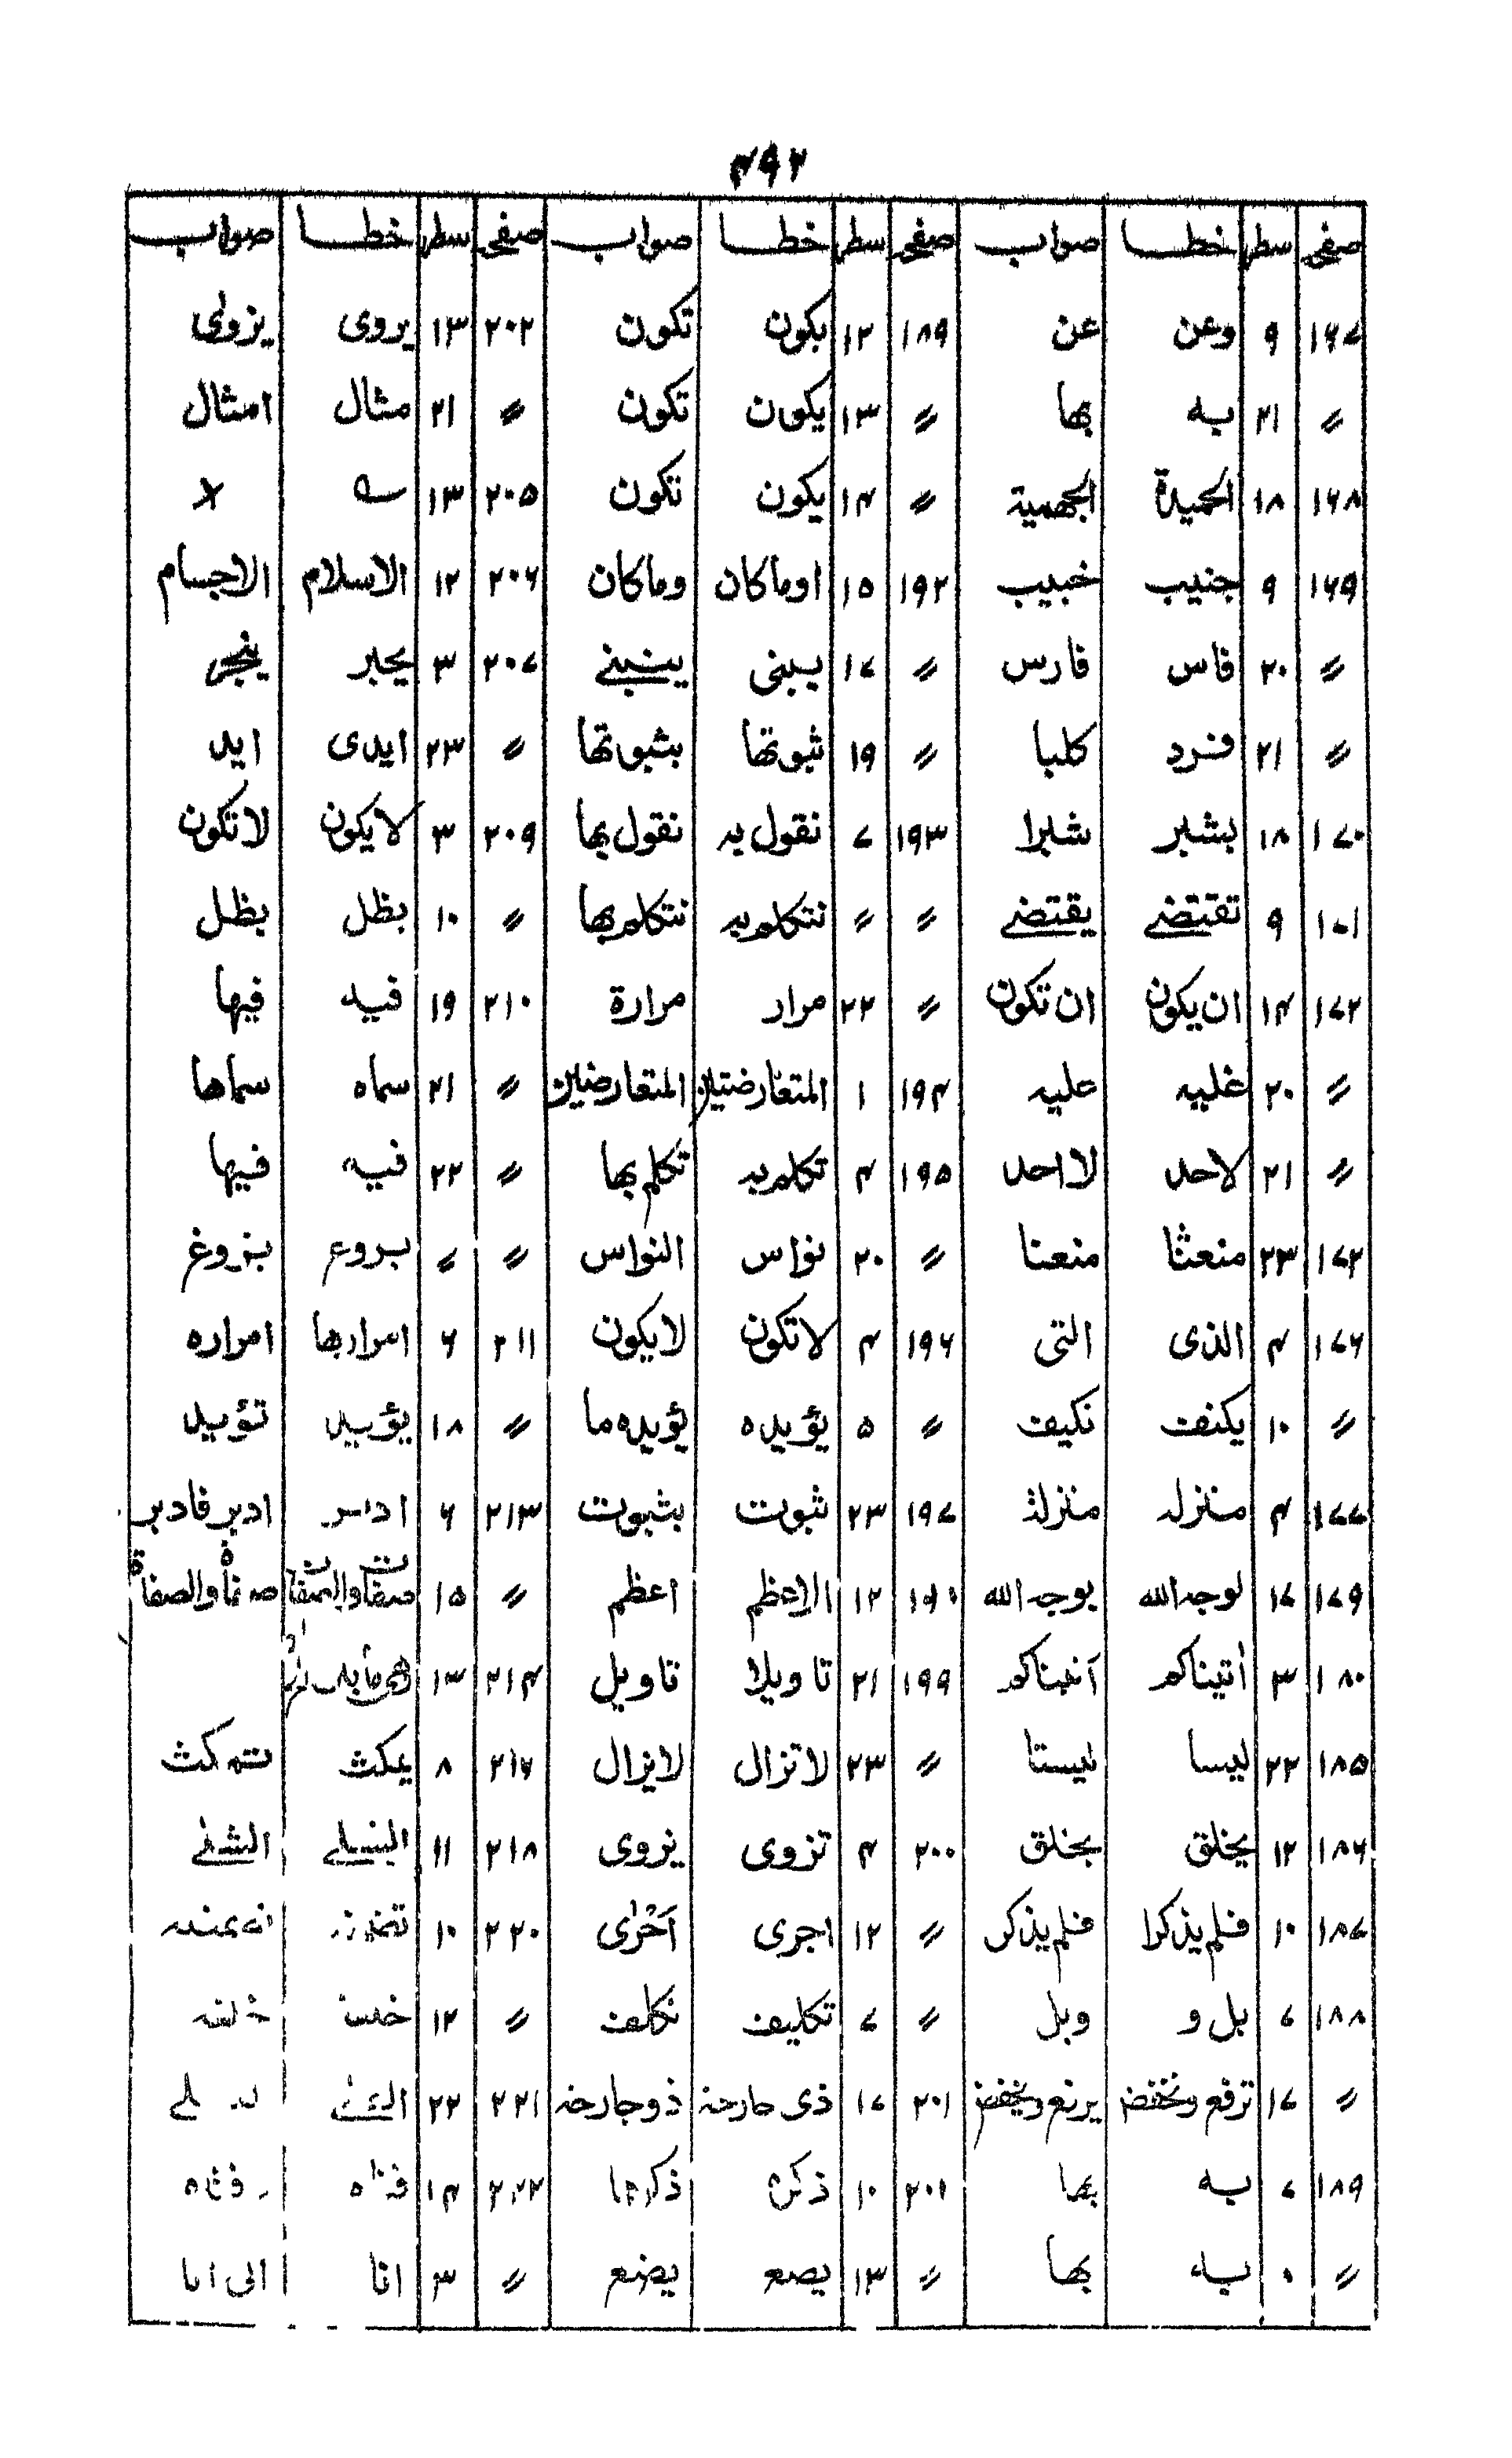 ۴۹۲
صفحہ سطر خطا صواب صفحہ سطر خطا صواب صفحہ سطر خطا صواب
۱۶۷ ۹ وعن عن ۱۸۹ ۱۲ بكون تكون ۲۰۲ ۱۳ يروى يزولى
〃 ۲۱ به بها 〃 ۱۳ يكون تكون 〃 ۲۱ مثال امثال
۱۶۸ ۱۸ الحميدة الجهمية 〃 ۱۴ يكون تكون ۲۰۵ ۱۳ ×
۱۶۹ ۹ جنيب خبيب ۱۹۲ ۱۵ اوماكان وماكان ۲۰۶ ۱۲ الاسلام الاجسام
〃 ۲۰ فاس فارس 〃 ۱۷ يبنى ۲۰۷ ۳ يجبر ينجبر
〃 ۲۱ فرد كلبا 〃 ۱۹ ثبوتها بثبوتها 〃 ۲۳ ايدى ايد
۱۷۰ ۱۸ بشبر شبرا ۱۹۳ ۷ نقول به نقول بها ۲۰۹ ۳ لايكون لاتكون
۱۷۱ ۹ تقتضے يقتضے 〃 〃 نتكلم به نتكلم بها 〃 ۱۰ بظل بظل
۱۷۲ ۱۴ ان يكون ان تكون 〃 ۲۲ مرار مرارة ۲۱۰ ۱۹ فيه فيها
〃 ۲۰ غليه عليه ۱۹۴ ۱ المتعارضتين المتعارضين 〃 ۲۱ سماه سماها
〃 ۲۱ لاحد لااحد ۱۹۵ ۴ تكلم به تكلم بها 〃 ۲۲ فيه فيها
۱۷۲ ۲۳ منعثا منعنا 〃 ۲۰ نواس النواس 〃 〃 بروع بزوغ
۱۷۶ ۴ الذى التى ۱۹۶ ۴ لاتكون لايكون ۲۱۱ ۶ امرارها امراره
〃 ۱۰ يكنف نكيف 〃 ۵ يؤيده يؤيده ما 〃 ۱۸ يؤييد تؤييد
۱۷۷ ۴ منزله منزلة ۱۹۷ ۲۳ ثبوت بثبوت ۲۱۳ ۶ ادبر فادبر
۱۷۹ ۱۷ لوجه الله بوجه الله ۱۲ الاعظم اعظم 〃 ۱۵ صفات والصفات صفاة والصفاة
۱۸۰ ۳ أتيناكم ۱۹۹ ۲۱ تاويلا تاويل ۲۱۴ ۱۳
۱۸۵ ۲۲ ليسا ليستا 〃 ۲۳ لاتزال لايزال ۲۱۷ ۸ يمكث تمكث
۱۸۶ ۱۲ يخلق بخلق ۲۰۰ ۴ تزوى يزوى ۲۱۸ ۱۱
۱۸۷ ۱۰ فلم يذكرا فلم يذكر 〃 ۱۲ اجرى أخرى ۲۲۰ ۱۰
۱۸۸ ۷ بل و وبل 〃 ۷ تكليف نكلف 〃 ۱۲
〃 ۱۷ ترفع وتخفض يرفع ويخفض ۲۰۱ ۱۷ ذى جارحة ذوجارحة ۲۲۱ ۲۲
۱۸۹ ۷ به بها ۱۰ ذكره ذكرها ۲۲۲ ۱۴
〃 به بها 〃 ۱۳ يصع يضع 〃 ۳ انا